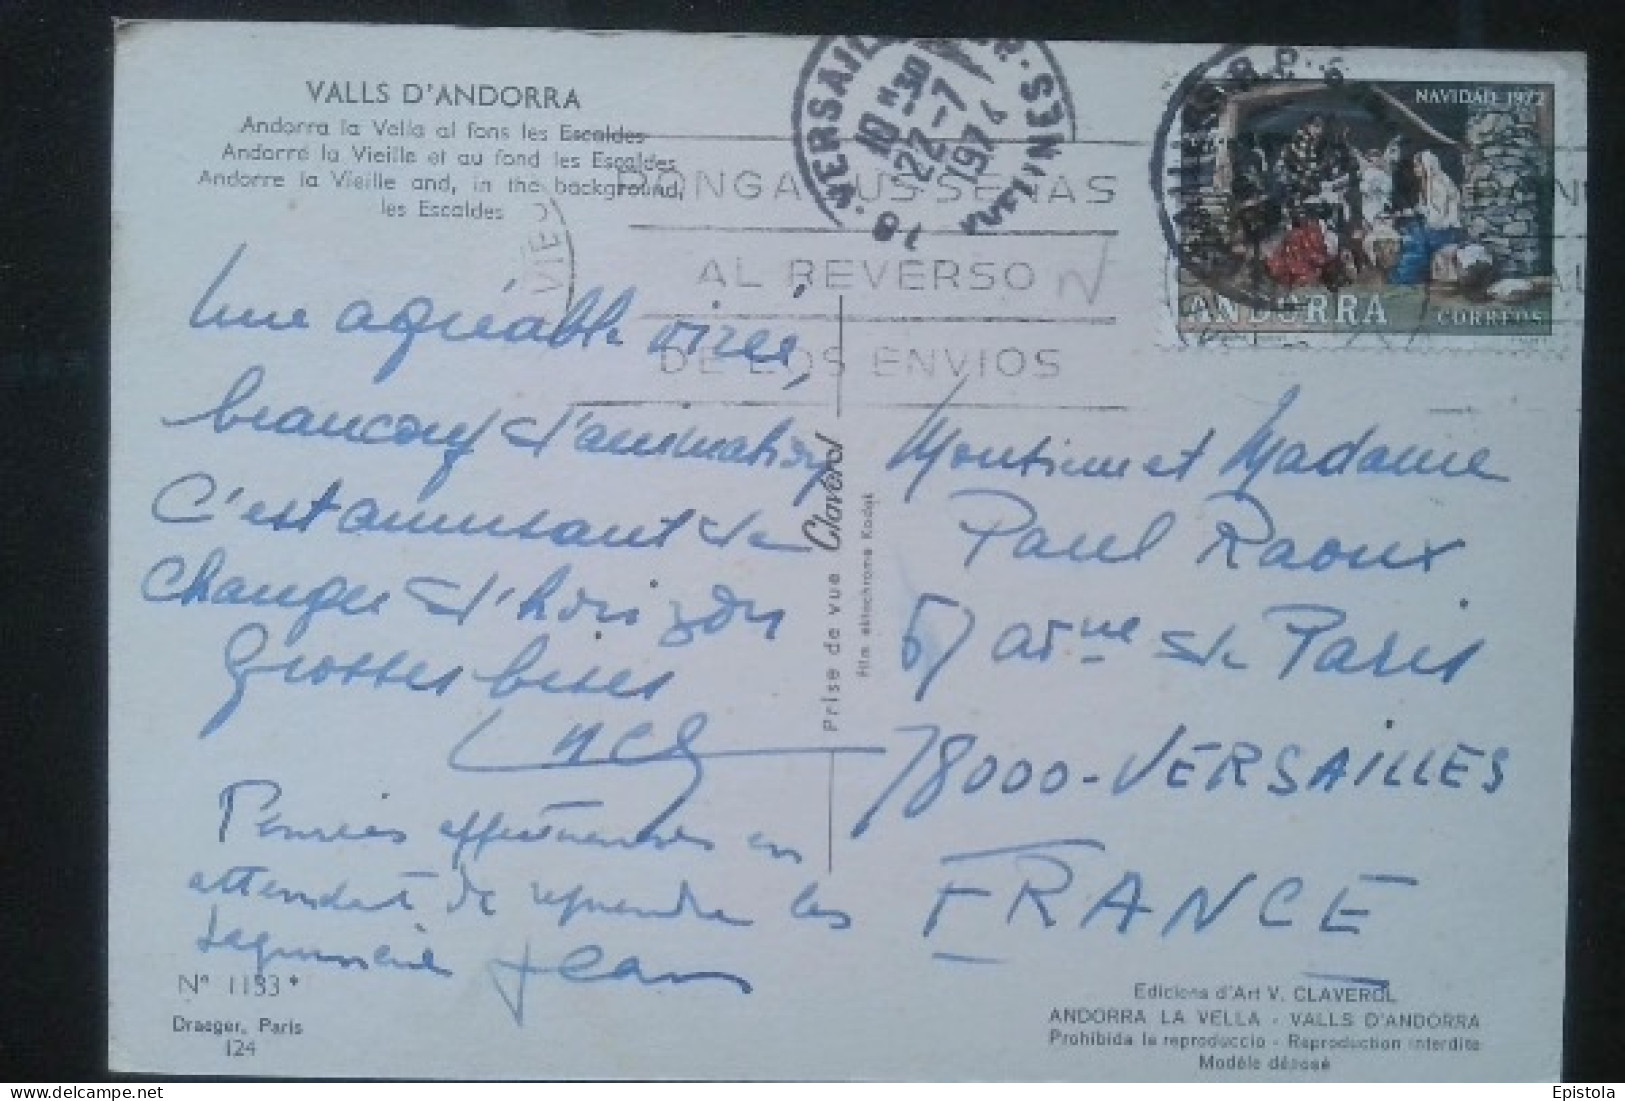 VALLS D'ANDORRA
Andorra la Vella al fons les Escaldes
Andorre la Vieille et au fond les Escaldes
Andorre la Vieille and, in the background,
les Escaldes
VERSAILLES
10 H 30
22-7
1974
78
PONGA SUS SEÑAS
AL REVERSO
DE LOS ENVIOS
NAVIDAD 1972
ANDORRA
CORREOS
Une agréable virée,
beaucoup d'animation
C'est amusant de
changer d'horizon
Grosses bises
Pensées affectueuses en
attendant de reprendre les
Jean
Prise de vue Claverol
Film ektachrome Kodak
Monsieur et Madame
Paul Raoux
57 avenue de Paris
78000-VERSAILLES
FRANCE
N° 1133*
Draeger, Paris
124
Edicions d'Art V. CLAVEROL
ANDORRA LA VELLA - VALLS D'ANDORRA
Prohibida la reproduccio - Reproduction interdite
Modèle déposé
Epistola